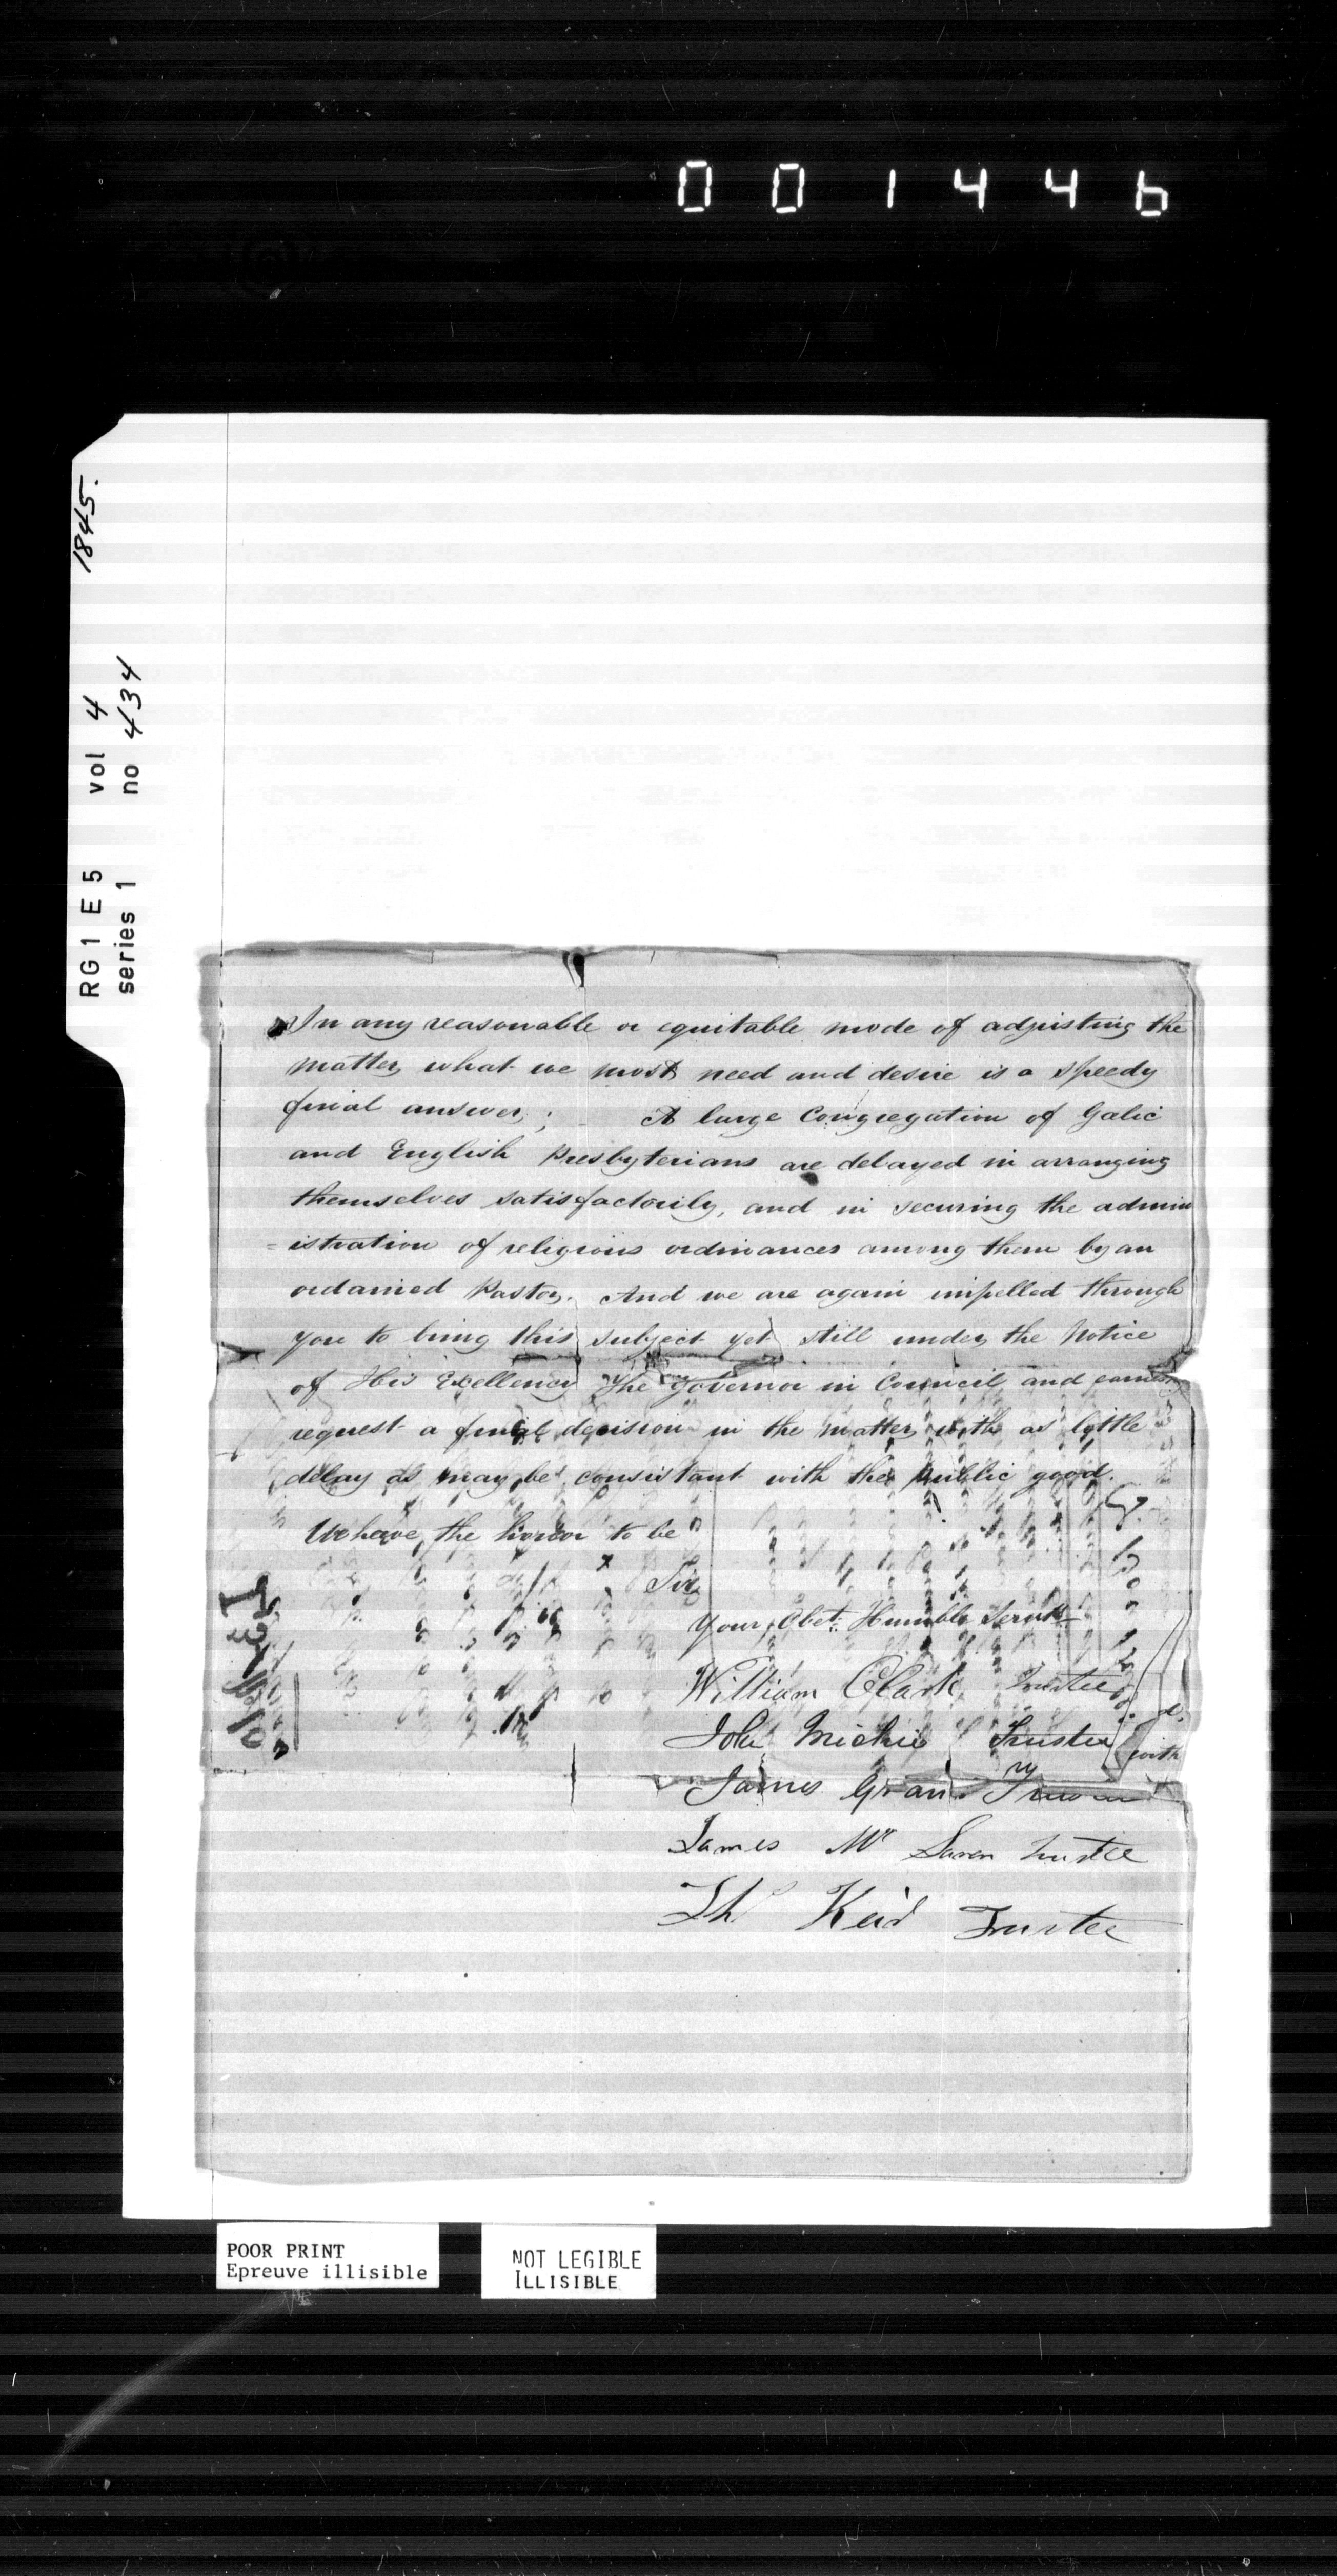 001446
1845.
RG1 E5 vol 4
series 1 no 434
In any reasonable or equitable mode of adjusting the
matter, what we most need and desire is a speedy
final answer; A large Congregation of Galic
and English Presbyterians are delayed in arranging
themselves satisfactorily, and in securing the admin
=istration of religious ordinances among them by an
ordained Pastor. And we are again impelled through
you to bring this subject yet still under the Notice
of His Excellency The Governor in Council and
request a final decision in the matter with as little
delay as may be consistant with the public good.
We have the honor to be
Sir
Your Obet. Humble Servts
William Clark Trustee
John Michie Trustee
with
James Grant
James Mc Trustee
Th Reid Trustee
POOR PRINT
Epreuve illisible
NOT LEGIBLE
ILLISIBLE